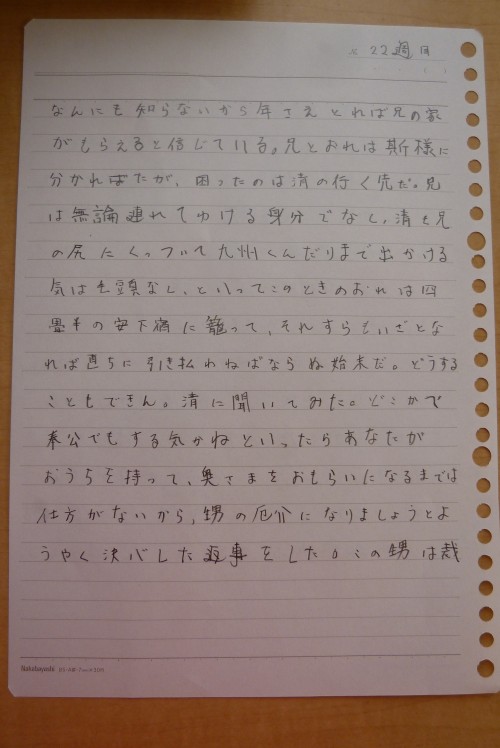 × 22週目
なんにも知らないから年さえとれば兄の家
がもらえると信じている。兄とおれは斯様に
分かればたが、困ったのは清の行く先だ。兄
は無論連れてゆける身分でなし、清も兄
の尻にくっついて九州くんだりまで出かける
気は毛頭なし、といってこのときのおれは四
畳半の安下宿に籠って、それすらもいざとな
れば直ちに引き払わねばならぬ始末だ。どうする
こともできん。清に聞いてみた。どこかで
奉公でもする気かねといったらあなたが
おうちを持って、奥さまをおもらいになるまでは
仕方がないから、甥の厄介になりましょうとよ
うやく決心した返事をした。この甥は裁